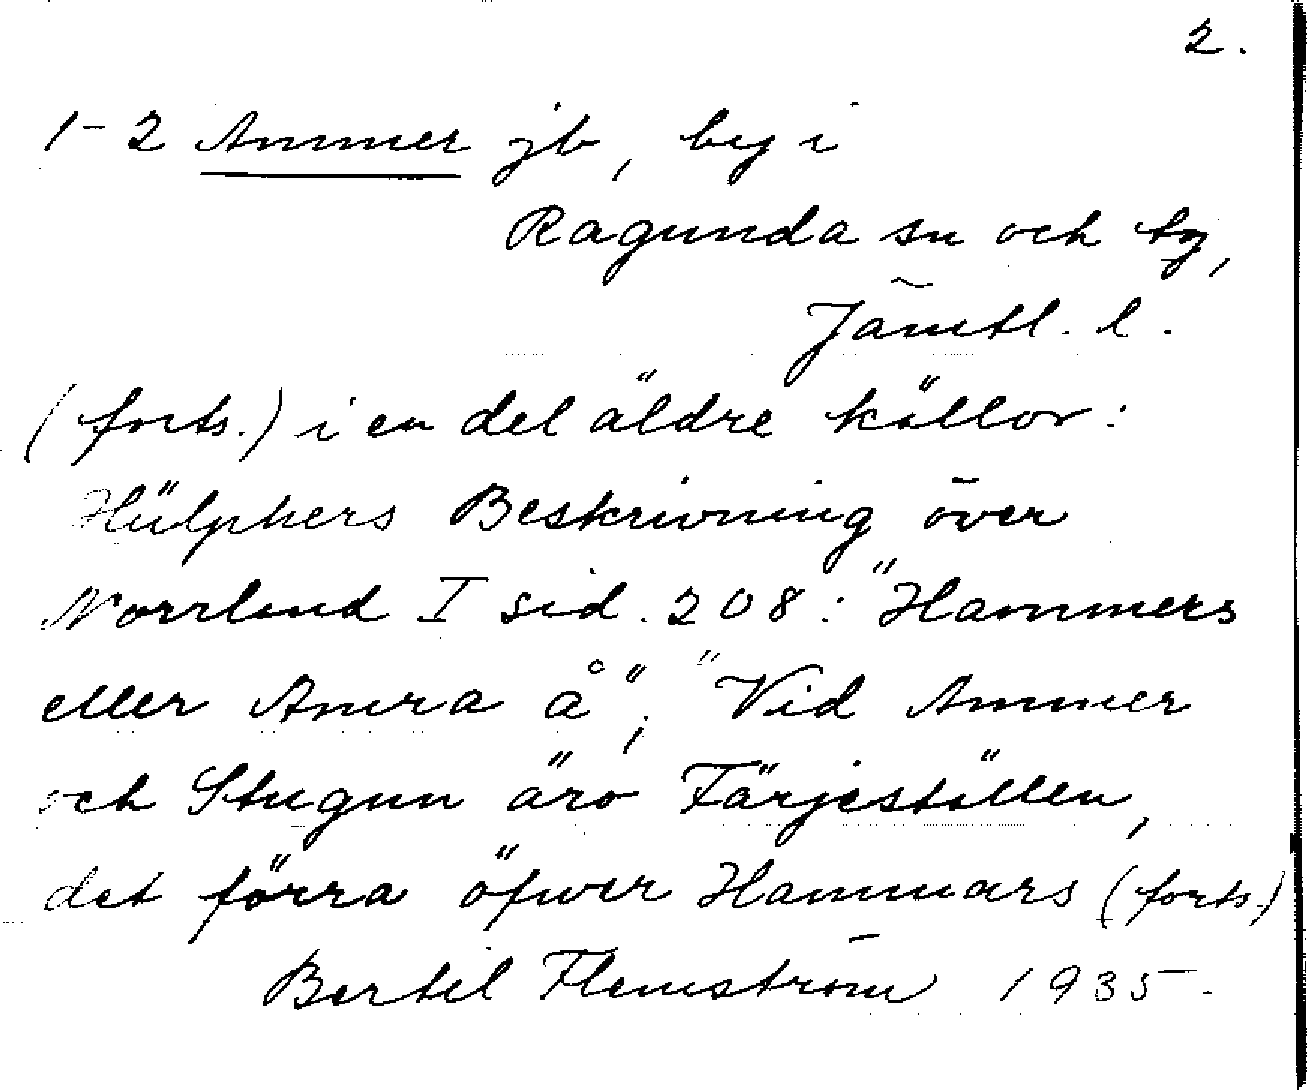 2.
1-2 Ammer jb, by i
Ragunda sn och tg,
Jämtl. l.
(forts.) i en del äldre källor:
Hülphers Beskrivning över
Norrland I sid. 208: "Hammers
eller Amra å"; "Vid Ammer
och Stugun äro Färjeställen,
det förra öfwer Hammars (forts.)
Bertil Flemström 1935.